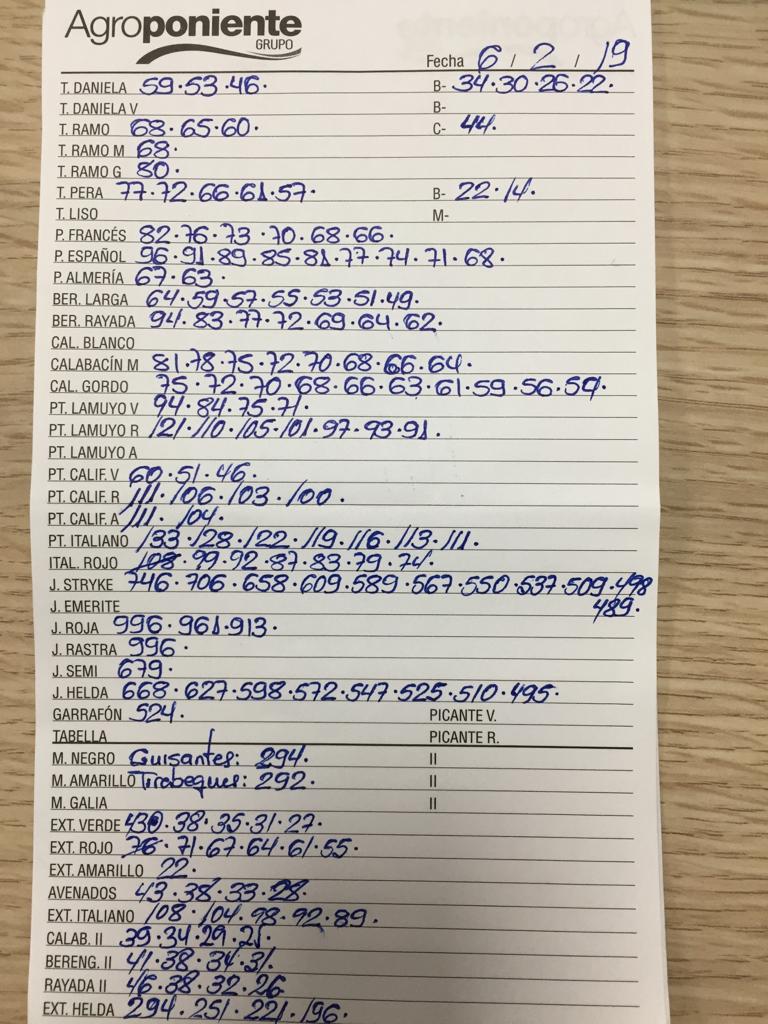 Agroponiente
GRUPO
Fecha 6 / 2 / 19
T. DANIELA 59·53·46· B- 34·30·26·22·
T. DANIELA V B-
T. RAMO 68·65·60· C- 44·
T. RAMO M 68·
T. RAMO G 80·
T. PERA 77·72·66·61·57· B- 22·14·
T. LISO M-
P. FRANCÉS 82·76·73·70·68·66·
P. ESPAÑOL 96·91·89·85·81·77·74·71·68·
P. ALMERÍA 67·63·
BER. LARGA 64·59·57·55·53·51·49·
BER. RAYADA 94·83·77·72·69·64·62·
CAL. BLANCO
CALABACÍN M 81·78·75·72·70·68·66·64·
CAL. GORDO 75·72·70·68·66·63·61·59·56·54·
PT. LAMUYO V 94·84·75·71·
PT. LAMUYO R 121·110·105·101·97·93·91·
PT. LAMUYO A
PT. CALIF. V 60·51·46·
PT. CALIF. R 111·106·103·100·
PT. CALIF. A 111·104·
PT. ITALIANO 133·128·122·119·116·113·111·
ITAL. ROJO 108·99·92·87·83·79·74·
J. STRYKE 746·706·658·609·589·567·550·537·509·498
J. EMERITE 489·
J. ROJA 996·961·913·
J. RASTRA 996·
J. SEMI 679·
J. HELDA 668·627·598·572·547·525·510·495·
GARRAFÓN 524· PICANTE V.
TABELLA PICANTE R.
M. NEGRO Guisantes: 294· II
M. AMARILLO Tirabeques: 292· II
M. GALIA II
EXT. VERDE 38·35·31·27·
EXT. ROJO 76·71·67·64·61·55·
EXT. AMARILLO 22·
AVENADOS 43·38·33·28·
EXT. ITALIANO 108·104·98·92·89·
CALAB. II 39·34·29·
BERENG. II 41·38·34·31·
RAYADA II 46·38·32·26
EXT. HELDA 294·251·221·196·